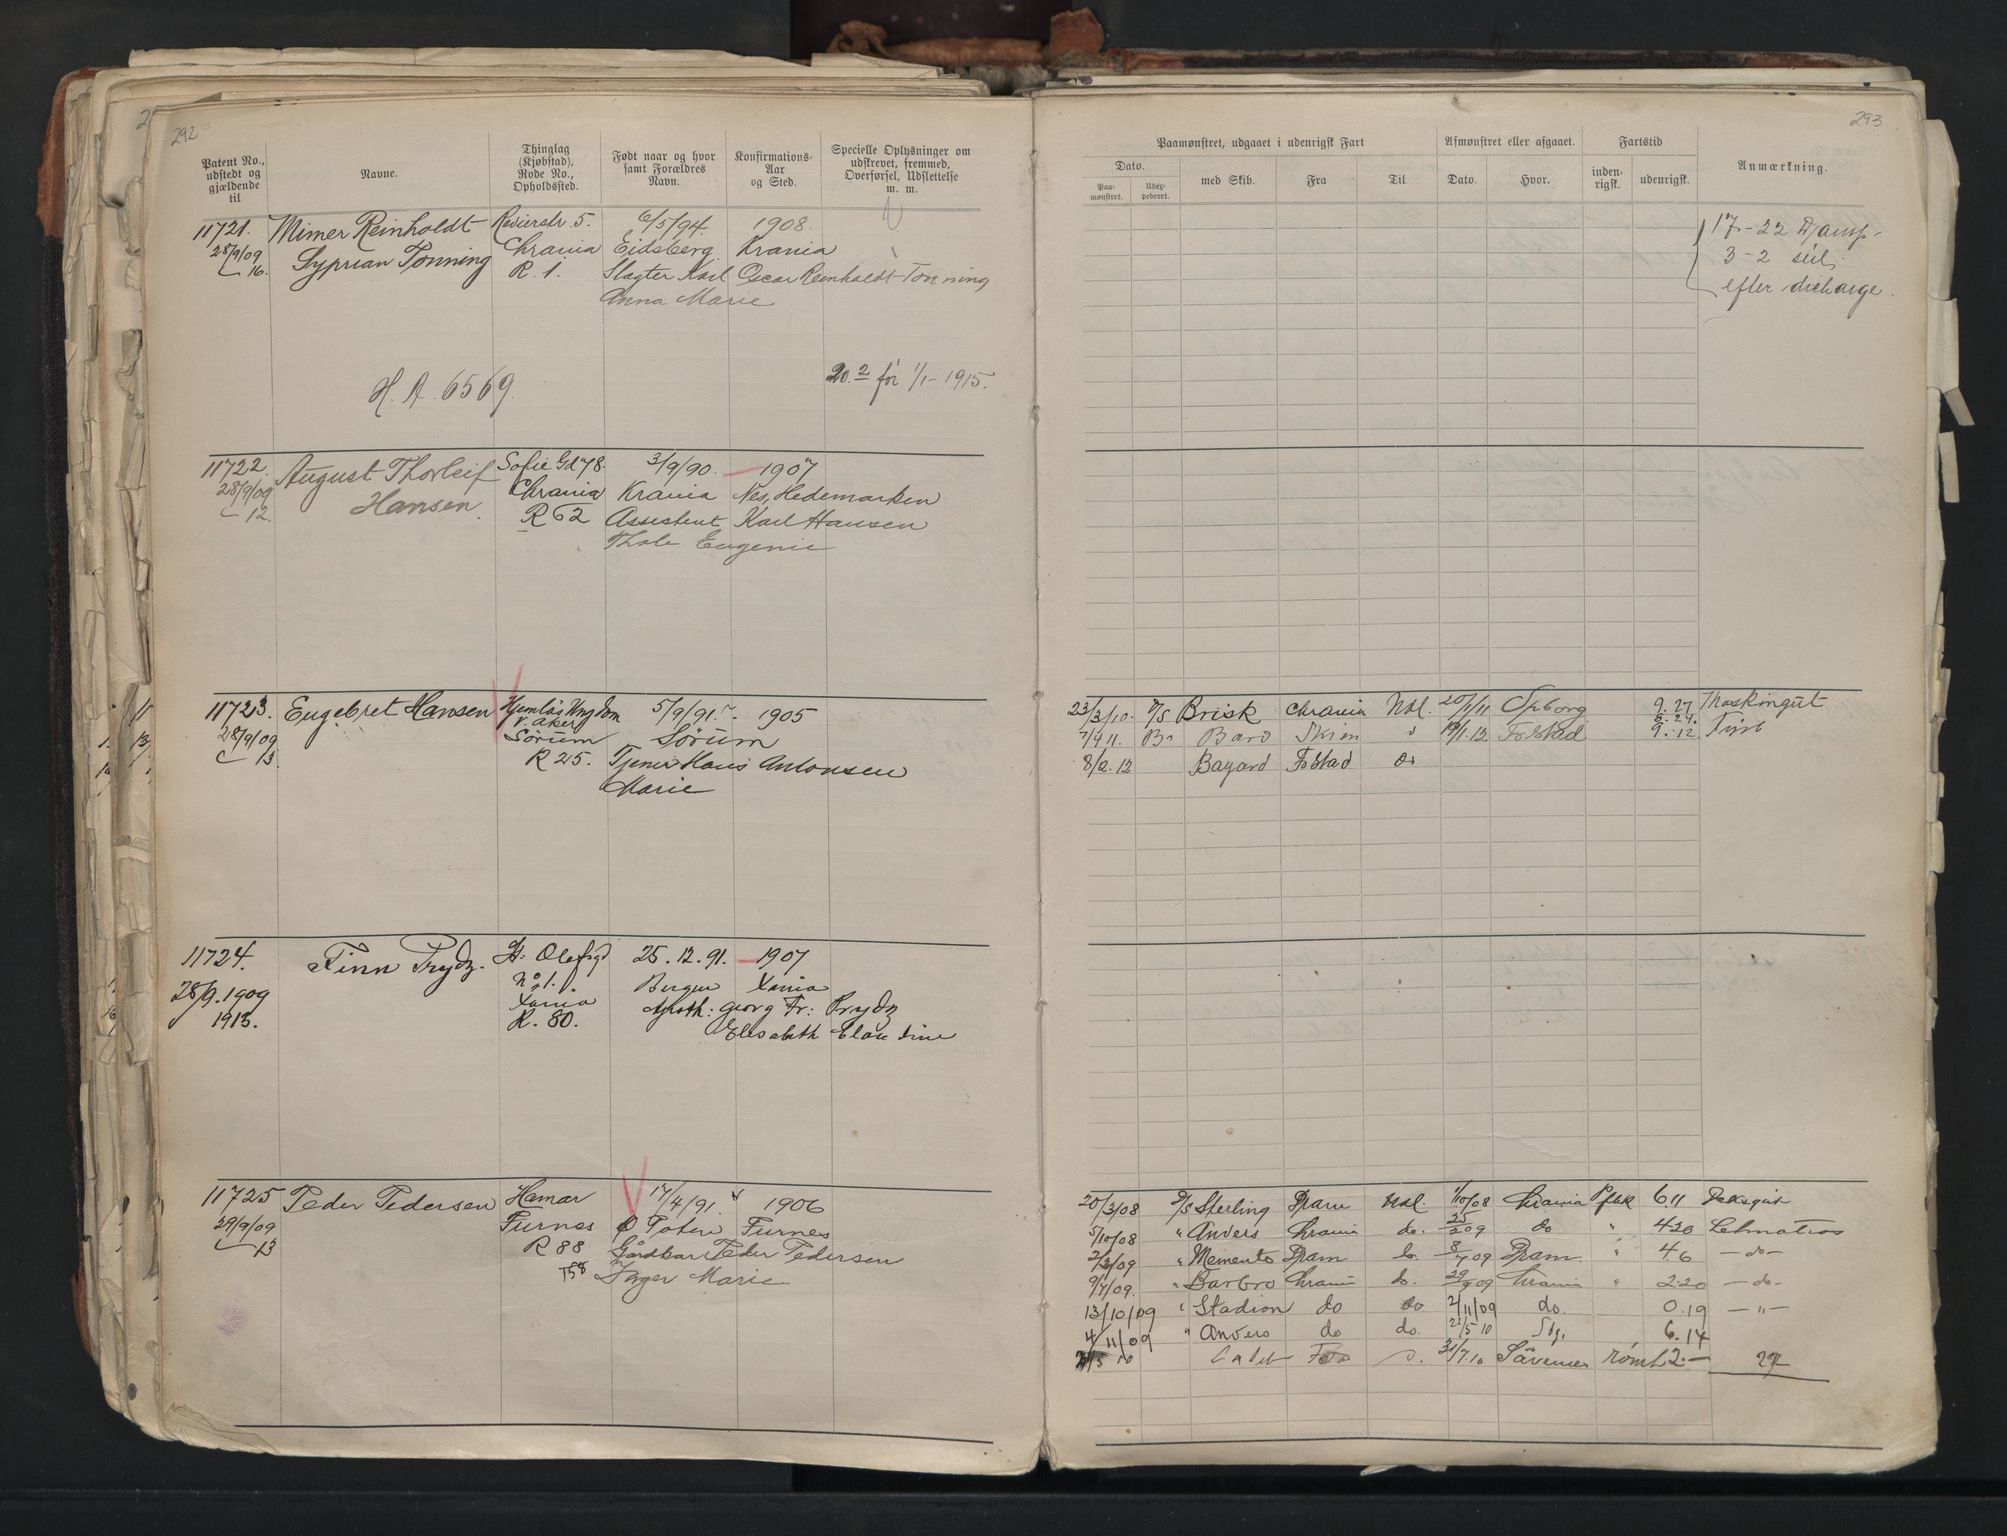 292
Patent No., udstedt og gjældende til
Navne.
Thinglag (Kjøbstad), Rode No., Opholdssted.
Født naar og hvor samt Forældres Navn.
Konfirmations-Aar og Sted.
Specielle Oplysninger om udskrevet, fremmed, Overførsel, Udslettelse m. m.
11721. Mimer Reinholdt Revierstr. 5. 6/5/94. 1908.
28/9/09 Syprian Tonning Chrania Eidsberg. Krania
16. R. 1. Slagter Karl Oscar Reinholdt Tonning
Anna Marie
H. A. 6569. 20.2 før 1/1-1915.
11722. August Thorleif Sofie Gd 78. 3/9/90. 1907
28/9/09 Hansen. Chrania Krania Nes, Hedemarken
12. R 62 Assistent Karl Hansen
Eugenie
11723. Engebret Hansen 5/9/91. 1905
28/9/09 V. Aker Sørum
13 Sørum
R 25. Tjener Hans Antonsen
Marie
11724. Finn Prydz. St. Olafsgd 25.12.91. 1907
28/9.1909 No 1. Bergen Xania
1913. Xania Apoth: Georg Fr: Prydz
R. 80. Elisabeth
11725 Peder Pedersen Hamar 17/4/91. 1906
29/9/09 Furnes Ø Toten Furnes
13 R 88 Gårdbar Peder Pedersen
Inger Marie
293
Paamønstret, udgaaet i udenrigsk Fart
Afmønstret eller afgaaet.
Fartstid
Anmærkning.
Dato.
Paamønstret.
Udexpederet.
med Skib.
Fra
Til
Dato.
Hvor.
indenrigsk.
udenrigsk.
17-22 Damp-
3-2 seil
efter discharge.
23/3/10. D/S Brisk Chrania Udl. 9.27 Maskingut
7/4 11. Bk Bard Skien " 19/1.12 Folstad 9.12 Fyrb
8/2.12 Bayard Fstad do
20/3/08 D/S Sterling Dram Udl. 1/10/08 Chrania Pfbk 6 11 Dæksgut
5/10/08 " Anvers Chrania do. 25/2 09 do " 4 20 Letmatros
2/3/09 " Memento Dram do. 8/7 09 Dram. " 4.6 -do-
9/7/09. " Barbro Chrania do. 29/9 09 Chrania " 2.20 -do-
13/10/09 " Stadion do do 2/11/09 do. 0.19 -"-
4/11/09 " Anvers do do. 21/5 10 6.14
Cadet 31/7.10 rømt 2.- 27